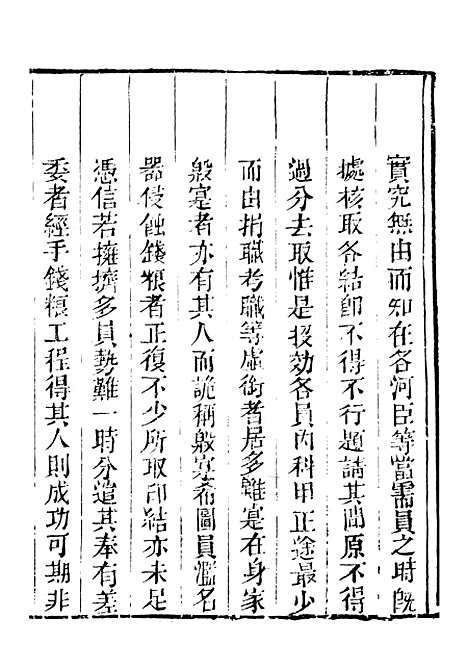 實究無由而知在各河臣等當需員之時既
據核取各結卽不得不行題請其間原不得
過分去取惟是投効各員內科甲正途最少
而由捐職考職等虛銜者居多雖寔在身家
殷寔者亦有其人而詭稱殷寔希圖員濫名
器侵蝕錢粮者正復不少所取印結亦未足
憑信若擁擠多員勢難一時分遣其奉有差
委者經手錢粮工程得其人則成功可期非